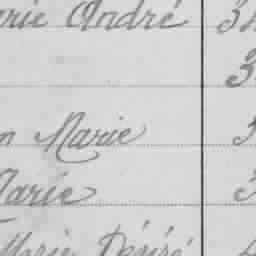 Marie André 34
3
n Marie 3
Marie 3
Marie Désiré